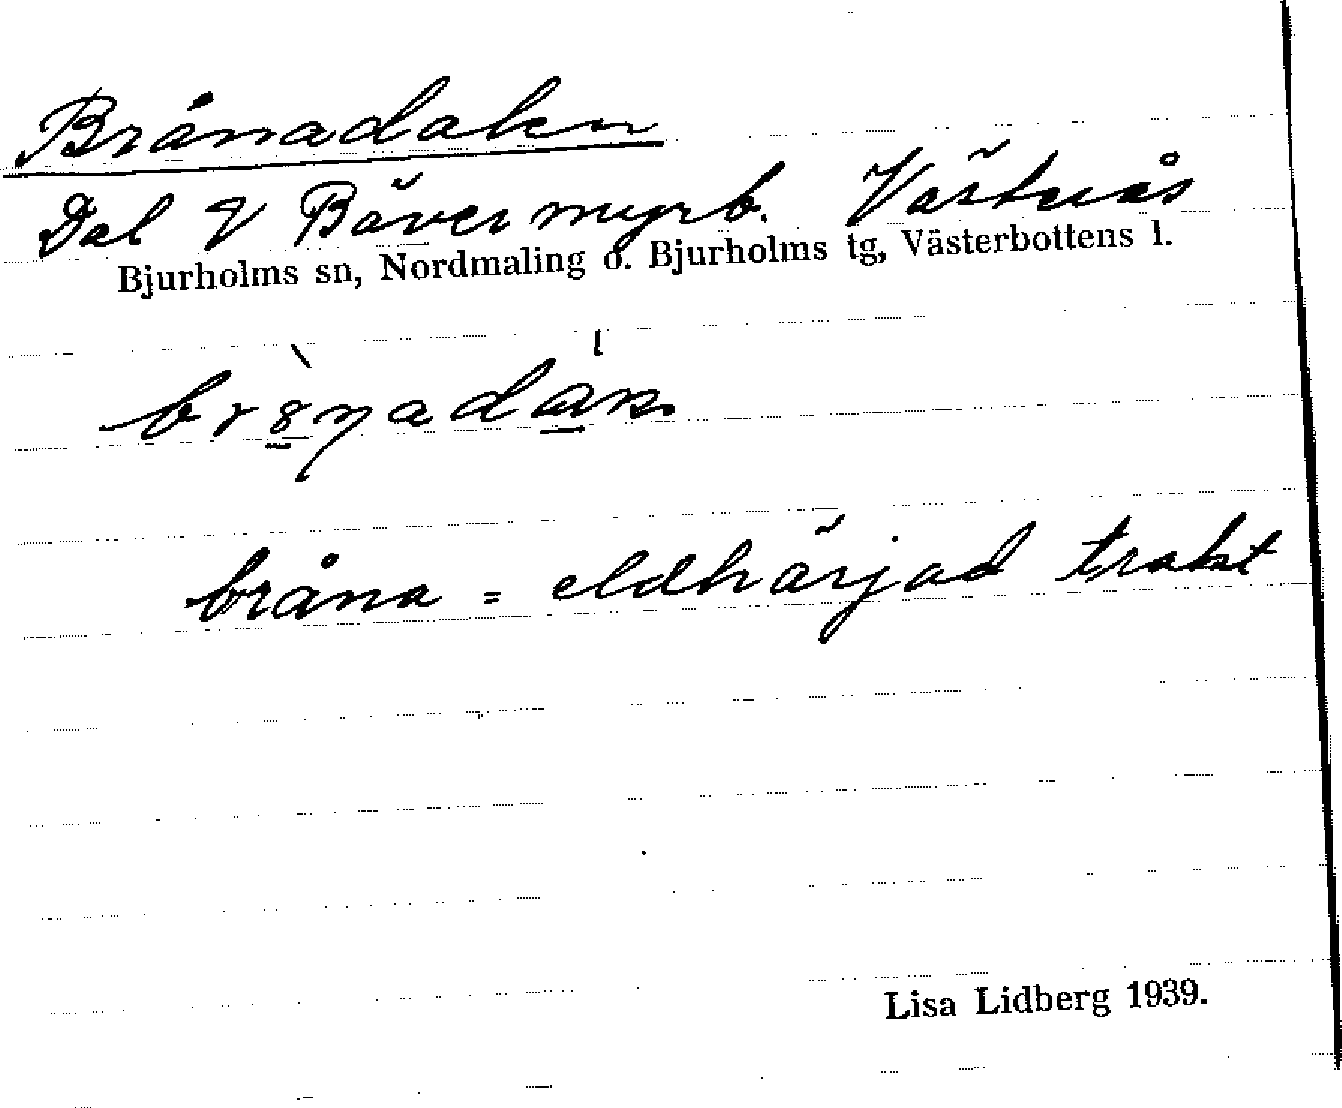 Brånadalen
Dal V Bävermyrb. Västerås
Bjurholms sn, Nordmaling o. Bjurholms tg, Västerbottens l.
bråna = eldhärjad trakt
Lisa Lidberg 1939.